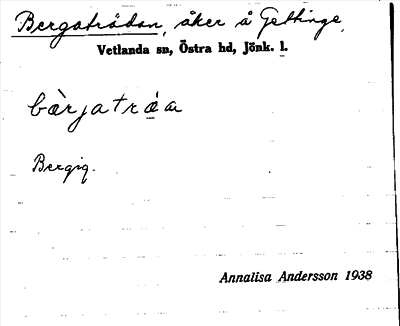 Bergaträdan, åker å Gettinge,
Vetlanda sn, Östra hd, Jönk. l.
bàrjatráa
Bergig.
Annalisa Andersson 1938